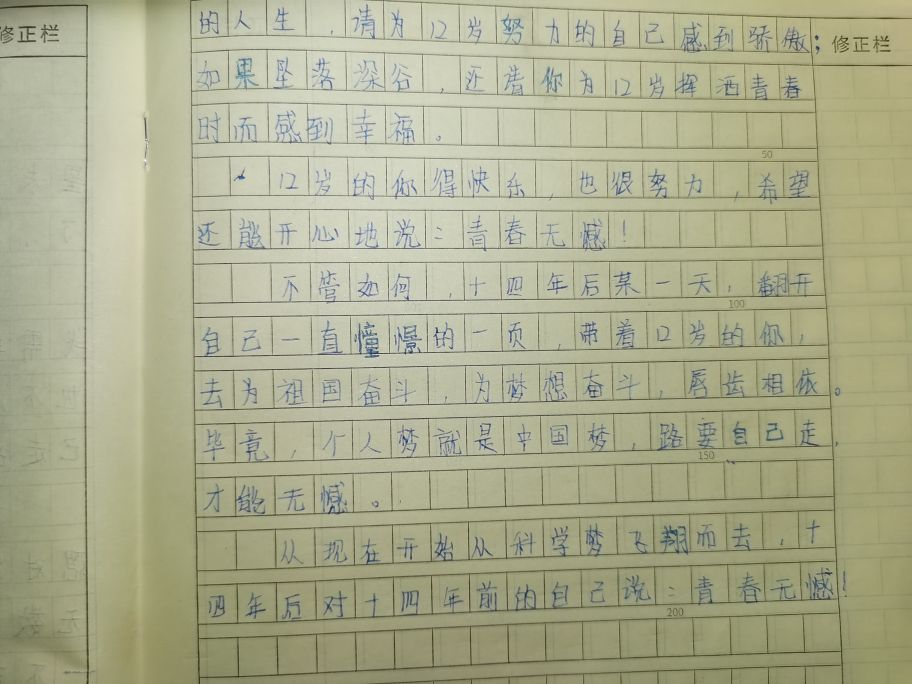 修正栏
的人生，请为12岁努力的自己感到骄傲；
修正栏
如果坠落深谷，还请你为12岁挥洒青春
时而感到幸福。
50
12岁的你得快乐，也很努力，希望
还能开心地说：青春无憾！
不管如何，十四年后某一天，翻开
100
自己一直憧憬的一页，带着12岁的你，
去为祖国奋斗，为梦想奋斗，唇齿相依。
毕竟，个人梦就是中国梦，路要自己走，
150
才能无憾。
从现在开始从科学梦飞翔而去，十
四年后对十四年前的自己说：青春无憾！
200